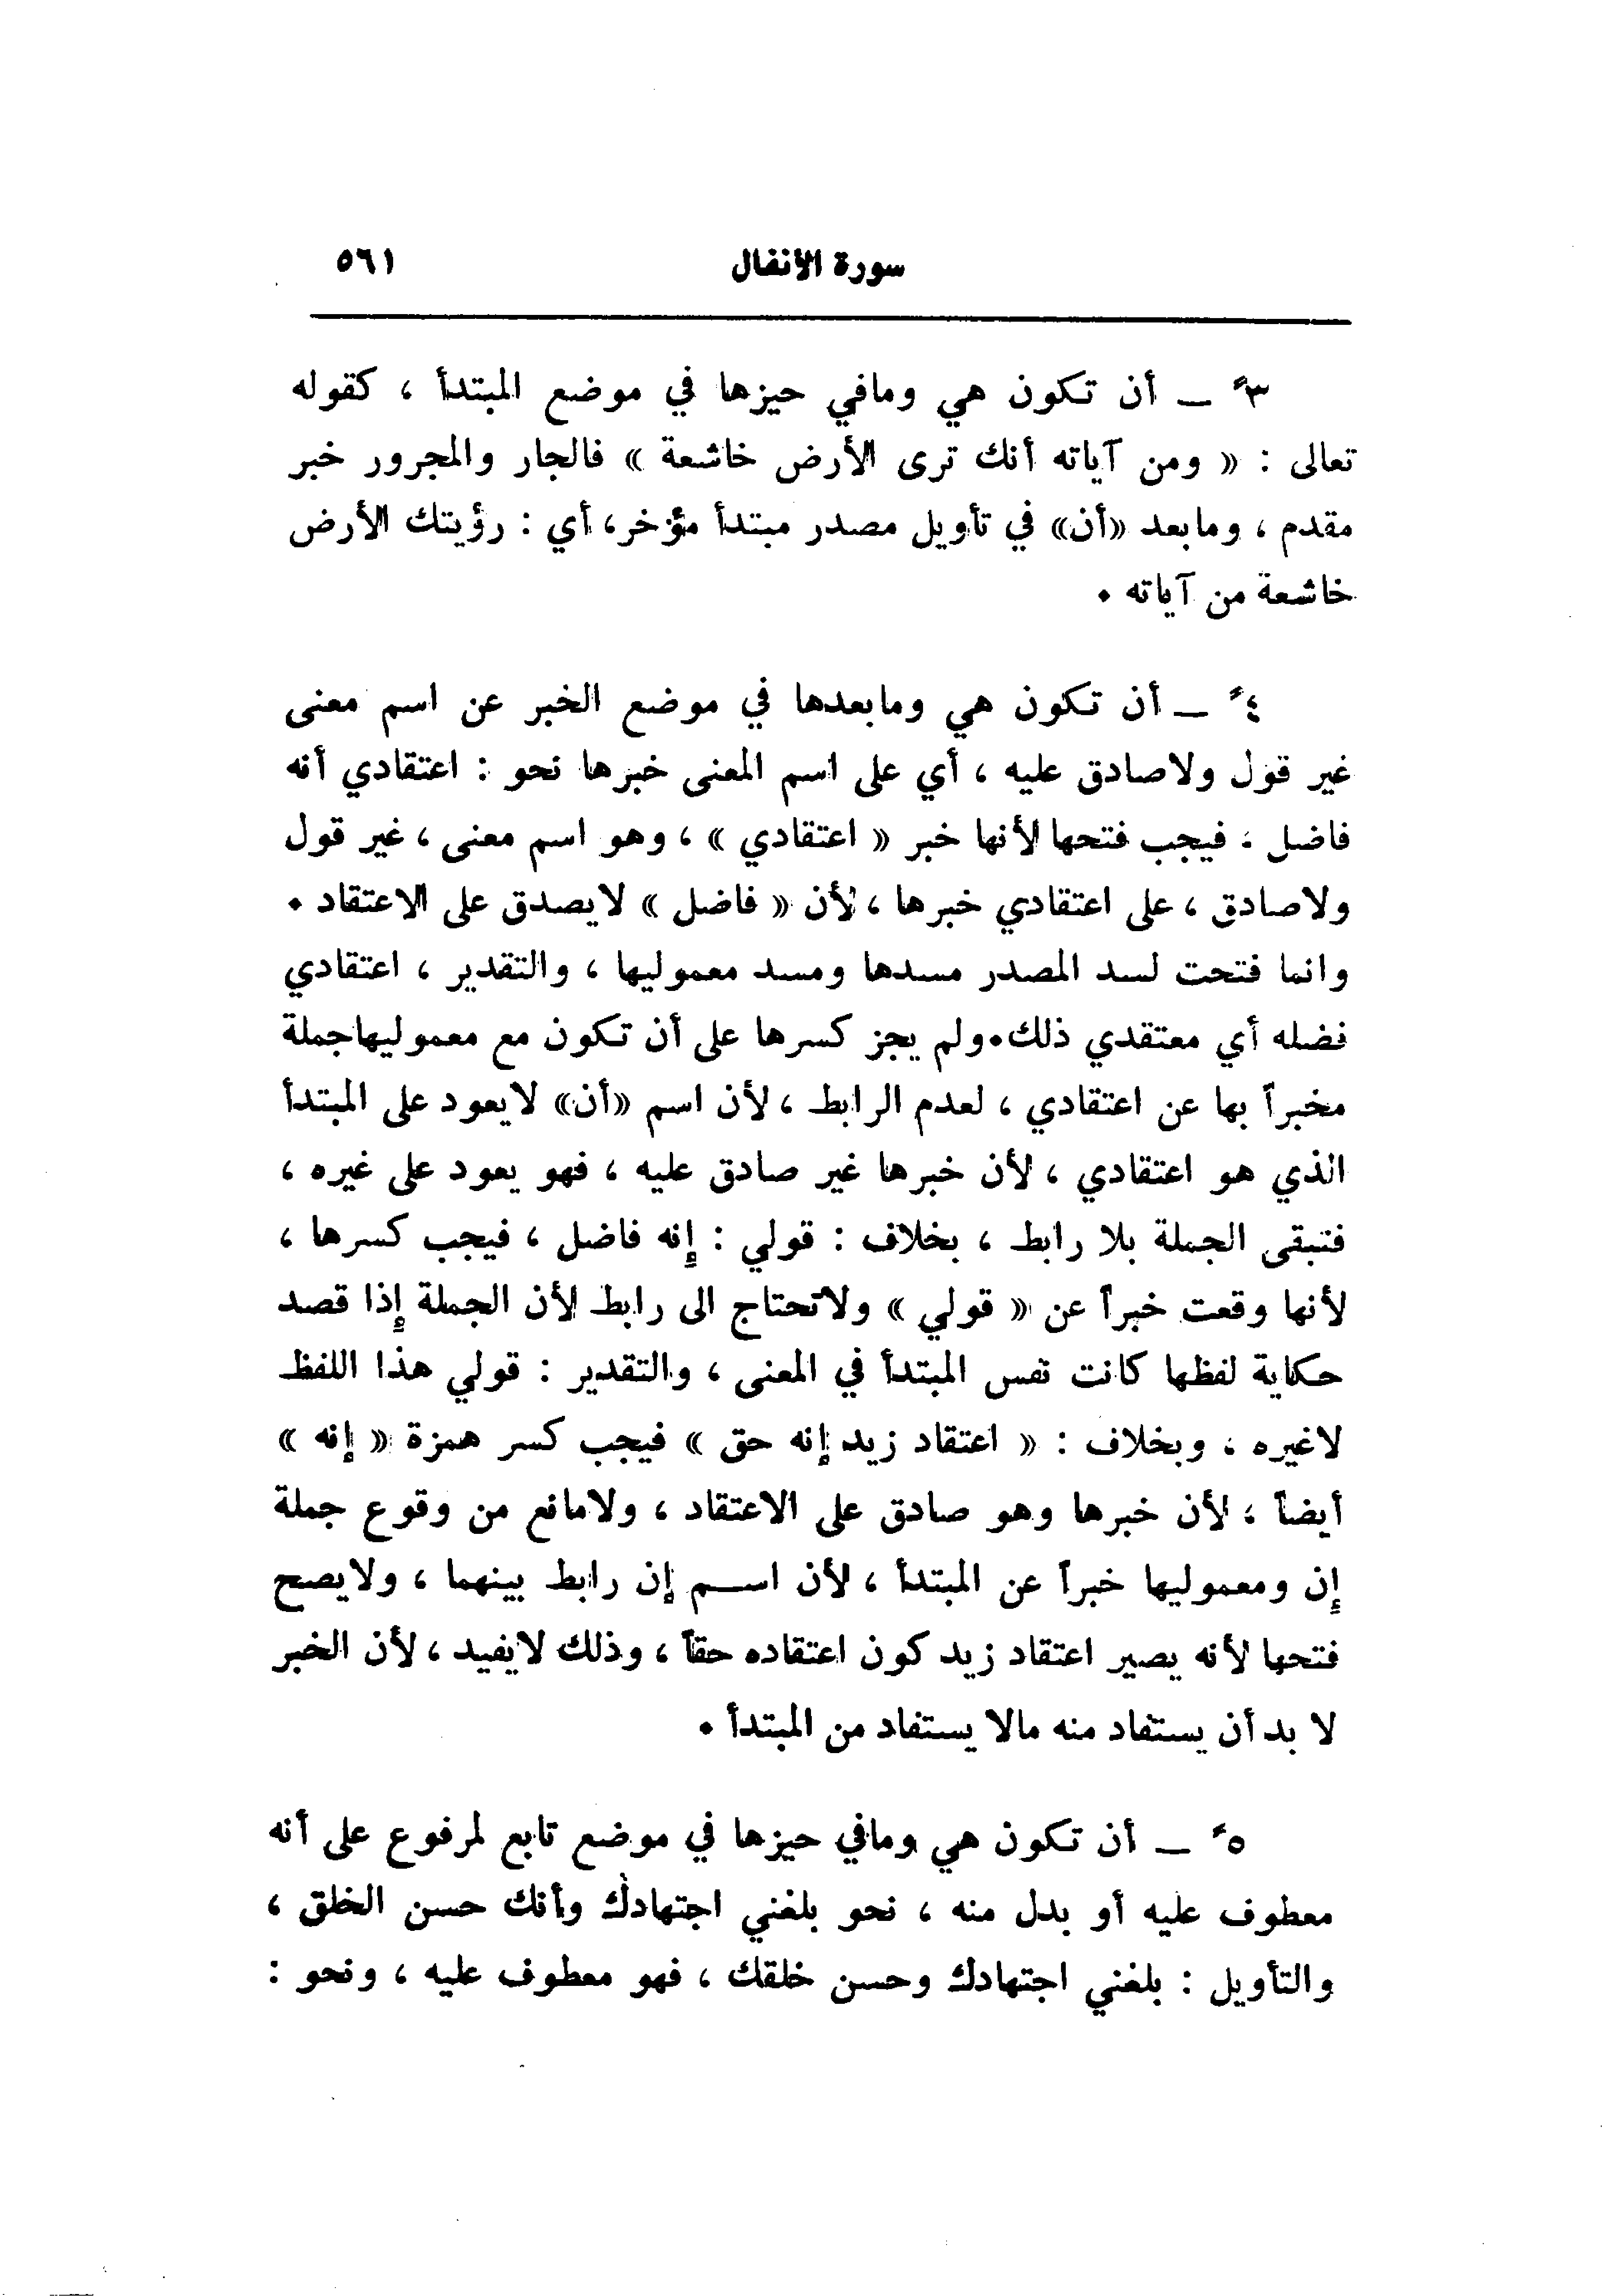 سورة الأنفال ٥٦١
٣ً ـ أن تكون هي ومافي حيزها في موضع المبتدأ ، كقوله
تعالى : « ومن آياته أنك ترى الأرض خاشعة » فالجار والمجرور خبر
مقدم ، ومابعد «أن» في تأويل مصدر مبتدأ مؤخر، أي : رؤيتك الأرض
خاشعة من آياته .
٤ً ـ أن تكون هي ومابعدها في موضع الخبر عن اسم معنى
غير قول ولاصادق عليه ، أي على اسم المعنى خبرها نحو : اعتقادي أنه
فاضل ، فيجب فتحها لأنها خبر « اعتقادي » ، وهو اسم معنى ، غير قول
ولاصادق ، على اعتقادي خبرها ، لأن « فاضل » لايصدق على الاعتقاد .
وانما فتحت لسد المصدر مسدها ومسد معموليها ، والتقدير ، اعتقادي
فضله أي معتقدي ذلك.ولم يجز كسرها على أن تكون مع معموليهاجملة
مخبراً بها عن اعتقادي ، لعدم الرابط ، لأن اسم «أن» لايعود على المبتدأ
الذي هو اعتقادي ، لأن خبرها غير صادق عليه ، فهو يعود على غيره ،
فتبقى الجملة بلا رابط ، بخلاف : قولي : إنه فاضل ، فيجب كسرها ،
لأنها وقعت خبراً عن « قولي » ولاتحتاج الى رابط لأن الجملة إذا قصد
حكاية لفظها كانت نفس المبتدأ في المعنى ، والتقدير : قولي هذا اللفظ
لاغيره ، وبخلاف : « اعتقاد زيد إنه حق » فيجب كسر همزة « إنه »
أيضاً ، لأن خبرها وهو صادق على الاعتقاد ، ولامانع من وقوع جملة
إن ومعموليها خبراً عن المبتدأ ، لأن اسم إن رابط بينهما ، ولايصح
فتحها لأنه يصير اعتقاد زيد كون اعتقاده حقاً ، وذلك لايفيد ، لأن الخبر
لا بد أن يستفاد منه مالا يستفاد من المبتدأ .
٥ً ـ أن تكون هي ومافي حيزها في موضع تابع لمرفوع على أنه
معطوف عليه أو بدل منه ، نحو بلغني اجتهادك وأنك حسن الخلق ،
والتأويل : بلغني اجتهادك وحسن خلقك ، فهو معطوف عليه ، ونحو :